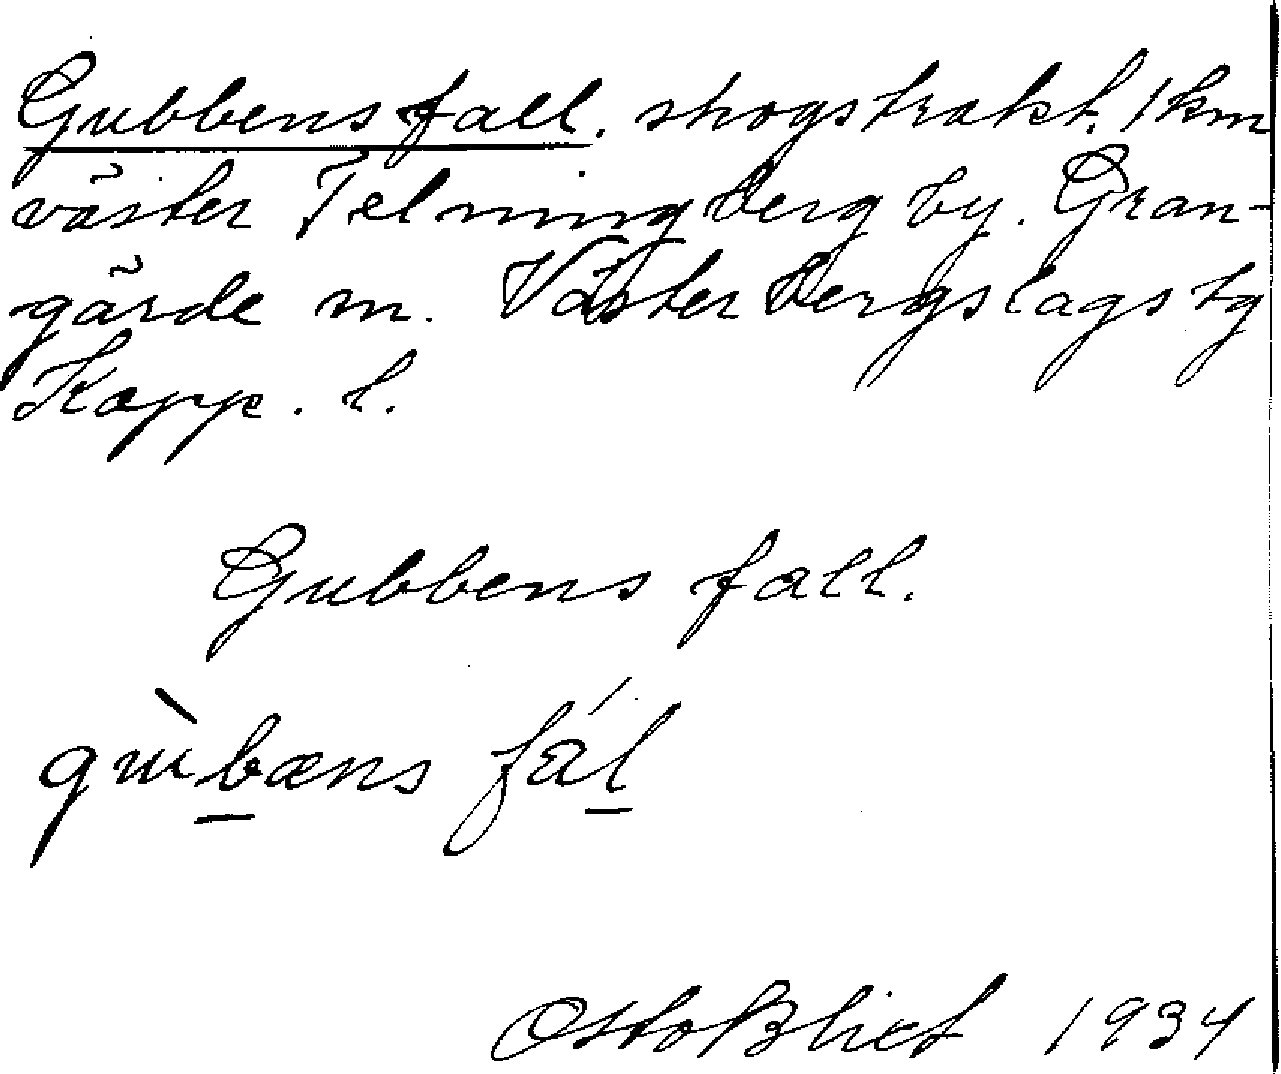 Gubbens fall. skogstrakt. 1 km
väster Telningberg by. Gran-
gärde m. Västerbergslags tg
Kopp. l.
Gubbens fall.
gùbæns fál
Otto Blixt 1934